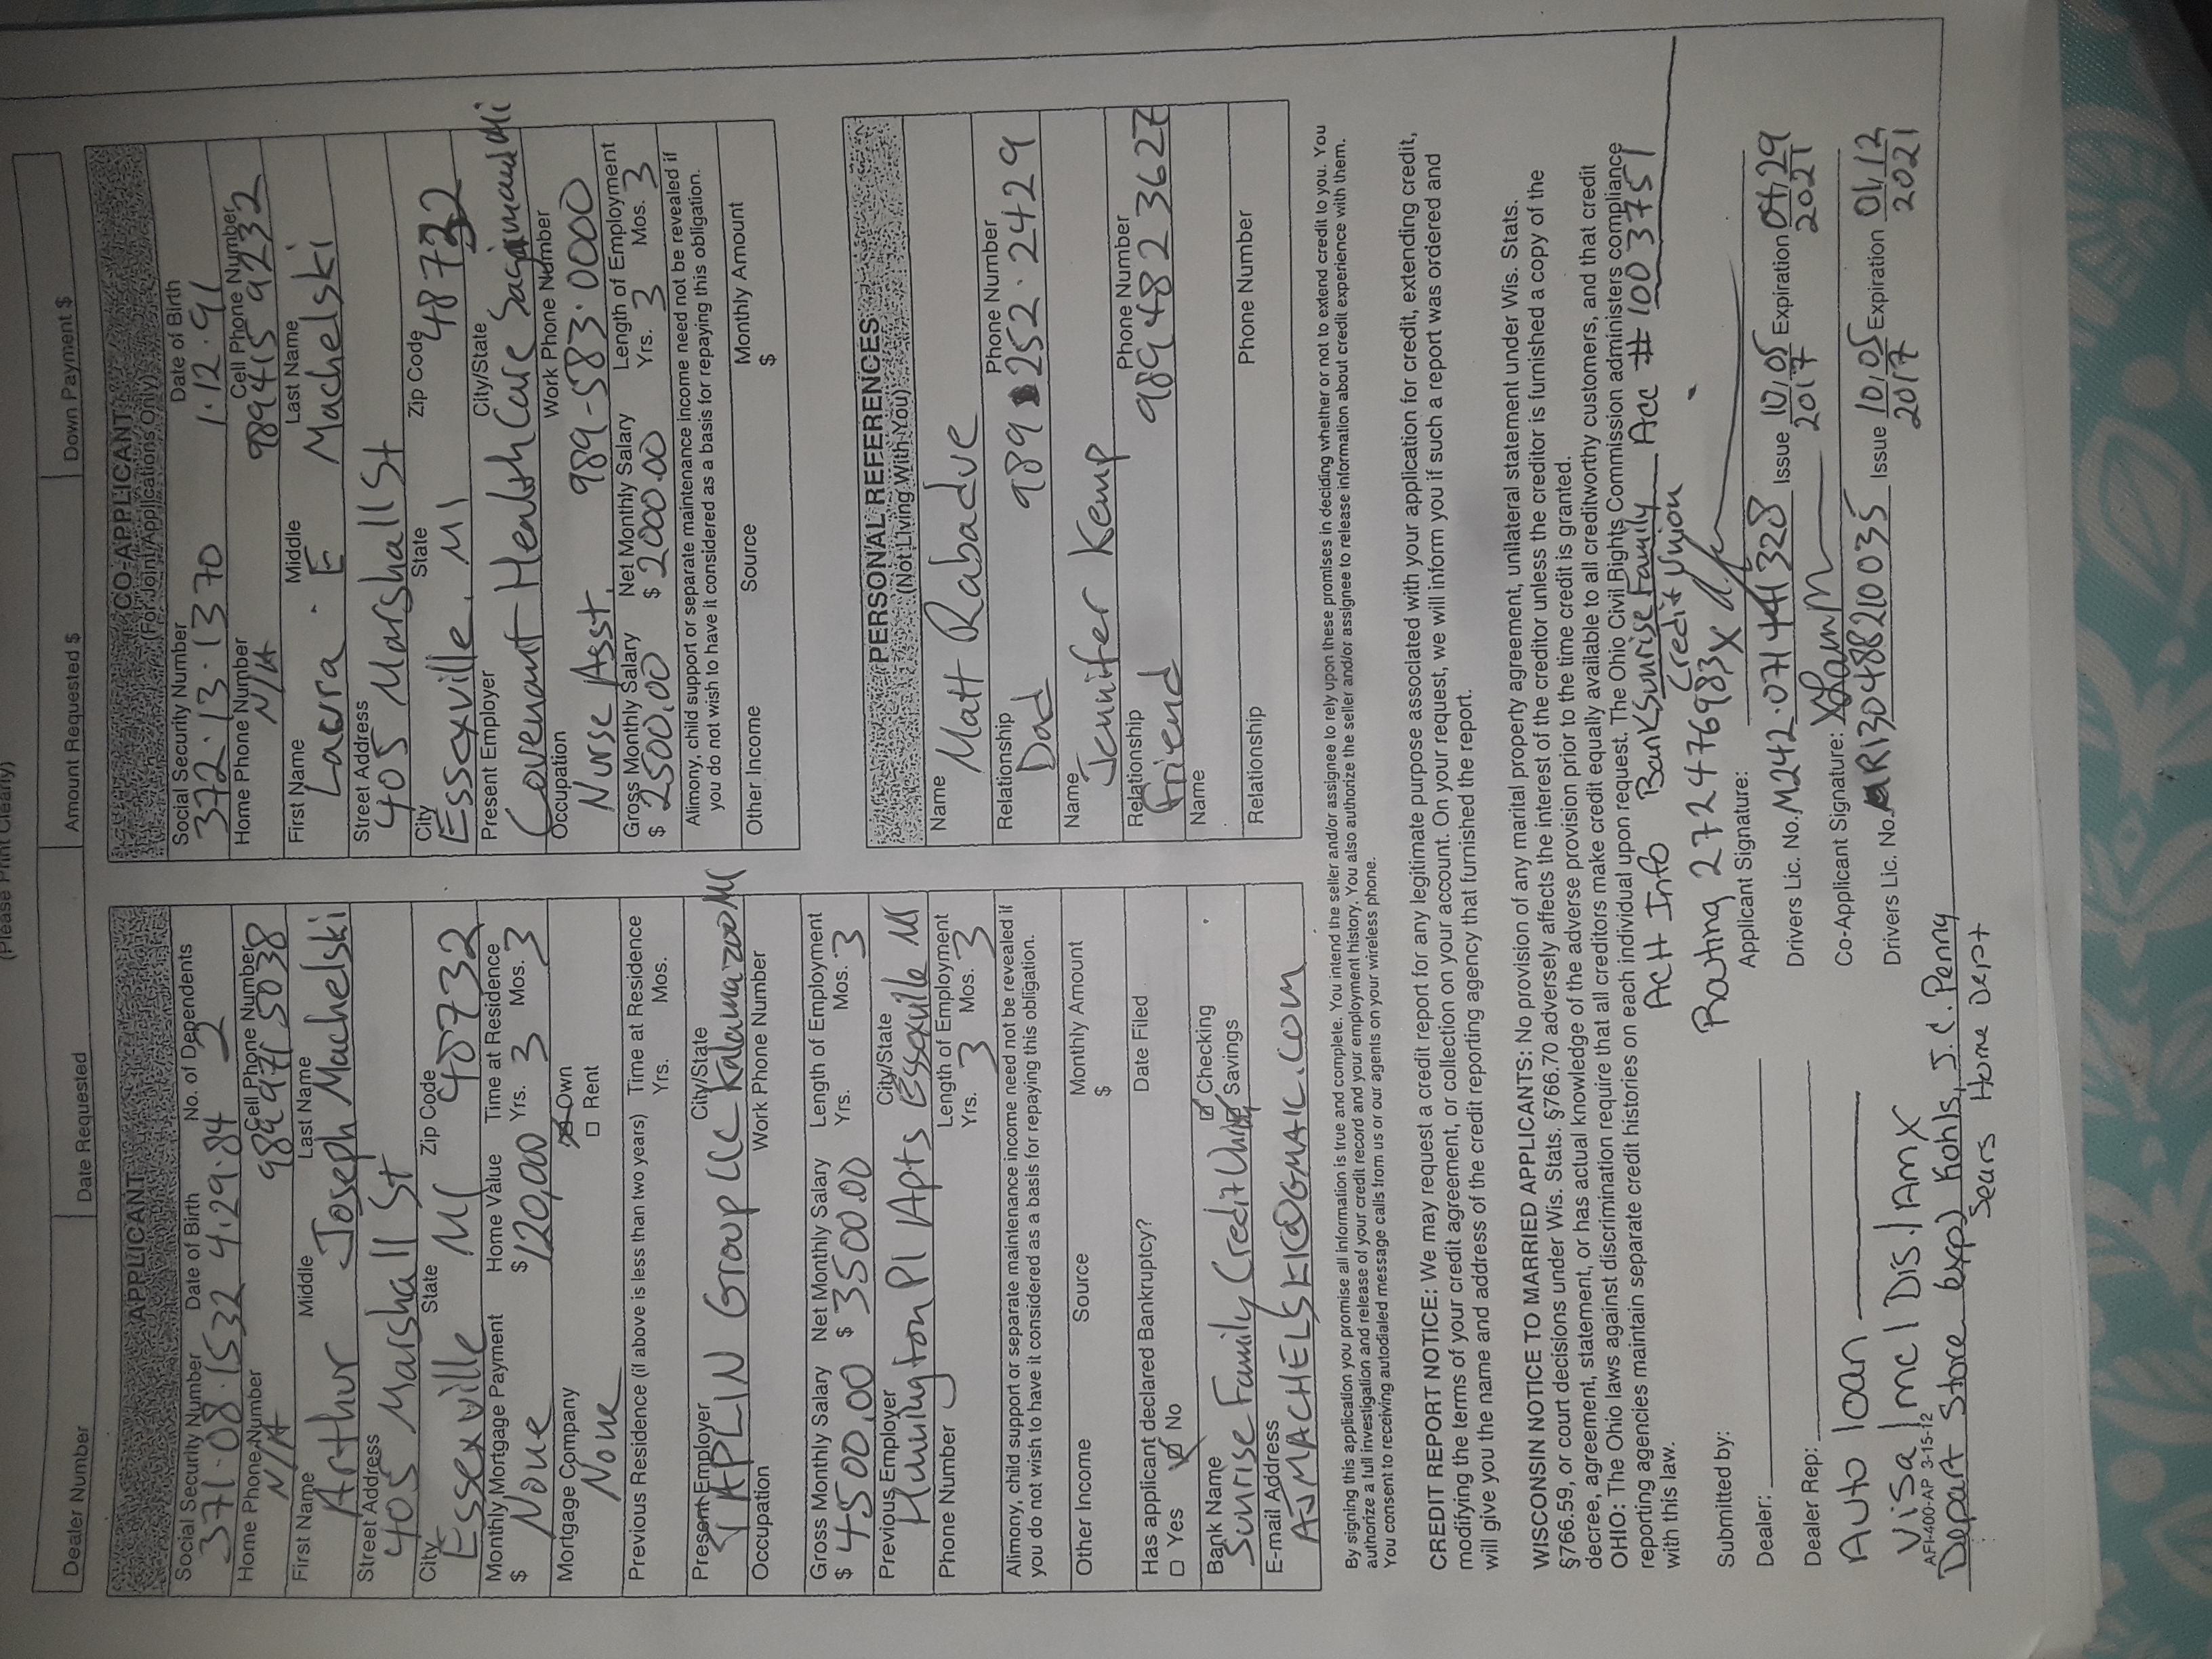 (Please Print Clearly)
Dealer Number Date Requested Amount Requested $ Down Payment $
APPLICANT
Social Security Number Date of Birth No. of Dependents
[redacted] [redacted] 2
Home Phone Number Cell Phone Number
N/A [redacted]
First Name Middle Last Name
Arthur Joseph Machelski
Street Address
[redacted]
City State Zip Code
Essexville MI 48732
Monthly Mortgage Payment Home Value Time at Residence
$ None $120,000 Yrs. 3 Mos. 3
Mortgage Company Own
None Rent
Previous Residence (if above is less than two years) Time at Residence
Yrs. Mos.
Present Employer City/State
Group LLC Kalamazoo MI
Occupation Work Phone Number
Gross Monthly Salary Net Monthly Salary Length of Employment
$ 4500.00 $ 3500.00 Yrs. Mos. 3
Previous Employer City/State
Pl Apts Essexville MI
Phone Number Length of Employment
Yrs. 3 Mos. 3
Alimony, child support or separate maintenance income need not be revealed if
you do not wish to have it considered as a basis for repaying this obligation.
Other Income Source Monthly Amount
$
Has applicant declared Bankruptcy? Date Filed
Yes No
Bank Name Checking
Sunrise Family Credit Union Savings
E-mail Address
[redacted]
CO-APPLICANT
(For Joint Applications Only)
Social Security Number Date of Birth
[redacted] [redacted]
Home Phone Number Cell Phone Number
N/A [redacted]
First Name Middle Last Name
Laura E Machelski
Street Address
[redacted]
City State Zip Code
Essexville, MI [redacted]
Present Employer City/State
Covenant HealthCare Saginaw Mi
Occupation Work Phone Number
Nurse Asst. 989-583-0000
Gross Monthly Salary Net Monthly Salary Length of Employment
$ 2500.00 $ 2000.00 Yrs. 3 Mos. 3
Alimony, child support or separate maintenance income need not be revealed if
you do not wish to have it considered as a basis for repaying this obligation.
Other Income Source Monthly Amount
$
PERSONAL REFERENCES
(Not Living With You)
Name
Matt Rabadue
Relationship Phone Number
Dad [redacted]
Name
Jennifer Kemp
Relationship Phone Number
Friend [redacted]
Name
Relationship Phone Number
By signing this application you promise all information is true and complete. You intend the seller and/or assignee to rely upon these promises in deciding whether or not to extend credit to you. You
authorize a full investigation and release of your credit record and your employment history. You also authorize the seller and/or assignee to release information about credit experience with them.
You consent to receiving autodialed message calls from us or our agents on your wireless phone.
CREDIT REPORT NOTICE: We may request a credit report for any legitimate purpose associated with your application for credit, extending credit,
modifying the terms of your credit agreement, or collection on your account. On your request, we will inform you if such a report was ordered and
will give you the name and address of the credit reporting agency that furnished the report.
WISCONSIN NOTICE TO MARRIED APPLICANTS: No provision of any marital property agreement, unilateral statement under Wis. Stats.
§766.59, or court decisions under Wis. Stats. §766.70 adversely affects the interest of the creditor unless the creditor is furnished a copy of the
decree, agreement, statement, or has actual knowledge of the adverse provision prior to the time credit is granted.
OHIO: The Ohio laws against discrimination require that all creditors make credit equally available to all creditworthy customers, and that credit
reporting agencies maintain separate credit histories on each individual upon request. The Ohio Civil Rights Commission administers compliance
with this law.
ACH Info Bank Sunrise Family Acc # [redacted]
Credit Union
Routing [redacted]
Submitted by: Applicant Signature:
Dealer: Drivers Lic. No. [redacted] Issue 10,05 2017 Expiration [redacted] 2021
Dealer Rep: Co-Applicant Signature:
Drivers Lic. No. [redacted] Issue 10,05 2017 Expiration [redacted] 2021
Auto loan
Visa | mc | Dis. | Amx
AFI-400-AP 3-15-12
Depart Store (exp) Kohls, J.C. Penny
Sears Home Dept